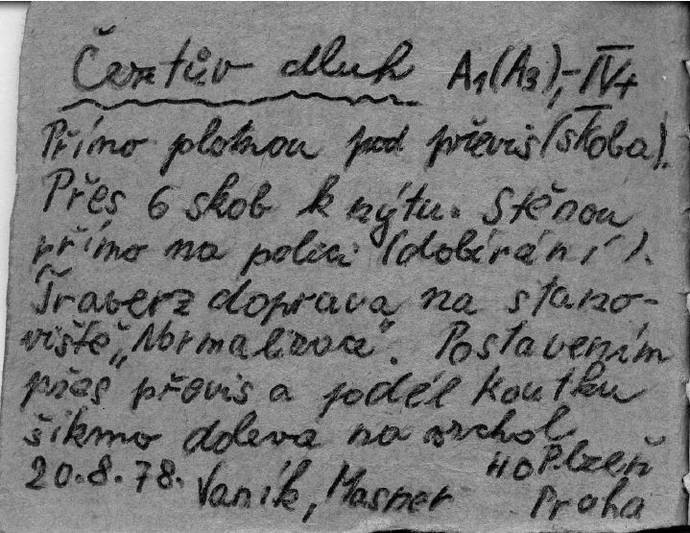 Čertův dluh A1(A3),-IV4
Přímo plotnou pod převis (skoba).
Přes 6 skob k nýtu. Stěnou
přímo na polici (dobírání).
Traverz doprava na stano-
viště „Normalizace“. Postavením
přes převis a podél koutku
šikmo doleva na vrchol
20.8.78. Vaník, Masner HO Plzeň
Praha